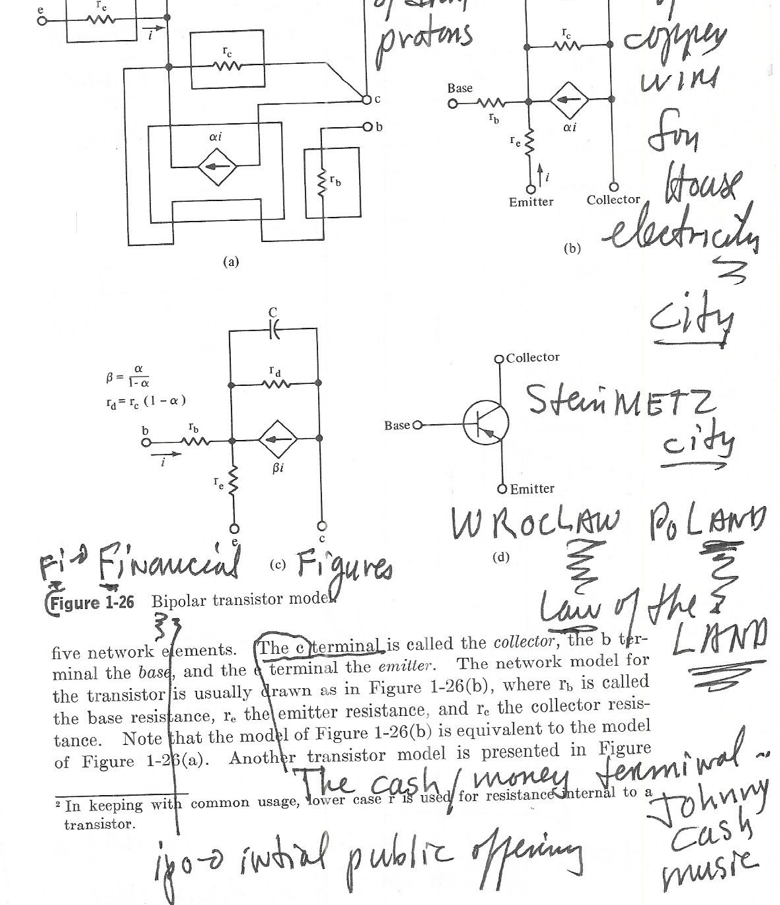 e
r_e
i
protons
r_c
c
b
αi
r_b
(a)
r_c
Base
r_b
αi
r_e
i
Emitter
Collector
(b)
copper
wire
for
House
electricity
city
C
β = α/1-α
r_d = r_c (1 - α)
r_d
b
r_b
i
βi
r_e
e
c
(c)
Collector
Base
Emitter
(d)
SteinMETZ
city
WROCLAW POLAND
Law of the
LAND
Fi → Financial Figures
Figure 1-26 Bipolar transistor model
five network elements. The c terminal is called the collector, the b ter-
minal the base, and the e terminal the emitter. The network model for
the transistor is usually drawn as in Figure 1-26(b), where r_b is called
the base resistance, r_e the emitter resistance, and r_c the collector resis-
tance. Note that the model of Figure 1-26(b) is equivalent to the model
of Figure 1-26(a). Another transistor model is presented in Figure
The cash/money terminal -
Johnny
Cash
music
² In keeping with common usage, lower case r is used for resistance internal to a
transistor.
ipo → intial public offering